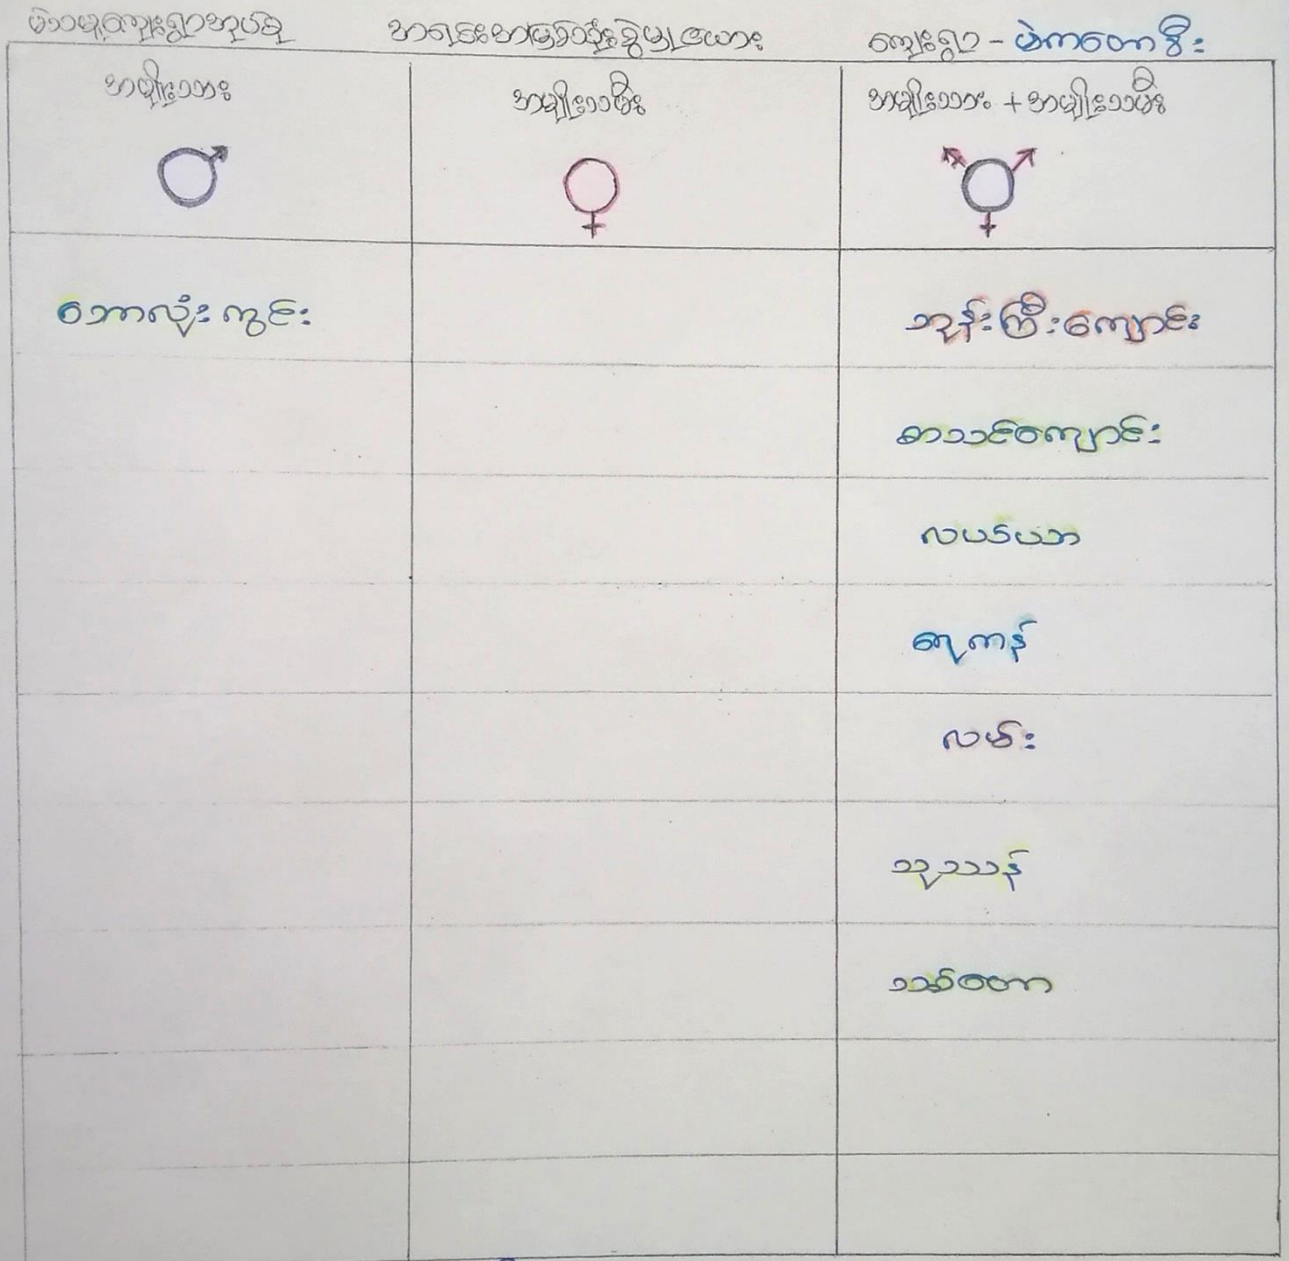 မဲသမုကျေးရွာအုပ်စု အရင်းအမြစ်သုံးစွဲမှုဇယား ကျေးရွာ - မဲကတောစီး
အမျိုးသား အမျိုးသမီး အမျိုးသား + အမျိုးသမီး
ဘောလုံးကွင်း ဘုန်းကြီးကျောင်း
စာသင်ကျောင်း
လယ်ယာ
ရေကန်
လမ်း
သုဿာန်
သစ်တော